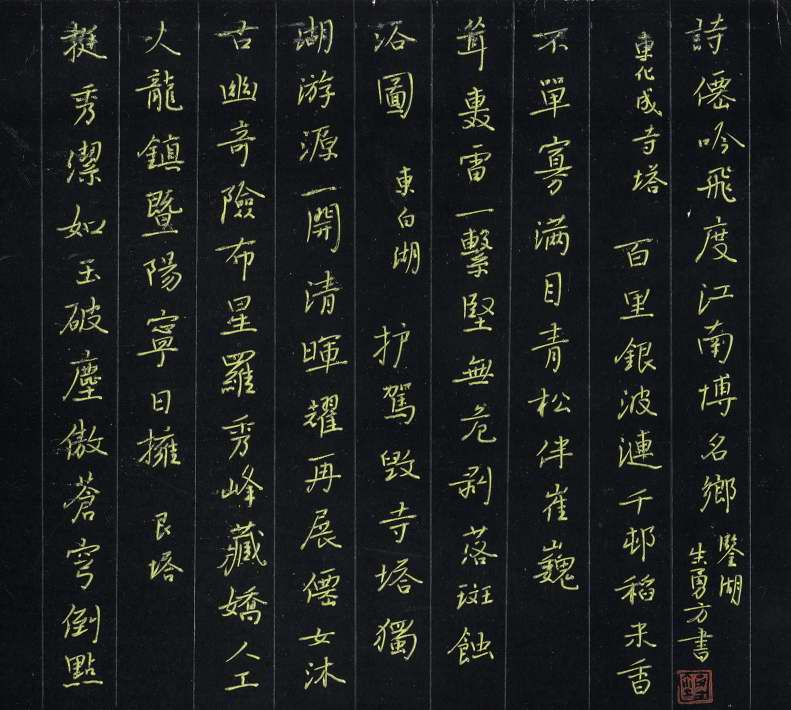 挺秀潔如玉破塵傲蒼穹倒點
火龍鎮暨陽寧日擁 艮塔
古幽奇險布星羅秀峰藏嬌人工
湖游源一開清暉耀再展僊女沐
浴圖 東白湖 护駕毀寺塔獨
聳轟雷一繫堅無危剥落斑蝕
不單寡满目青松伴崔巍
東化成寺塔 百里銀波漣千邨稻米香
詩僊吟飛度江南博名鄉
鑒湖
生勇方書